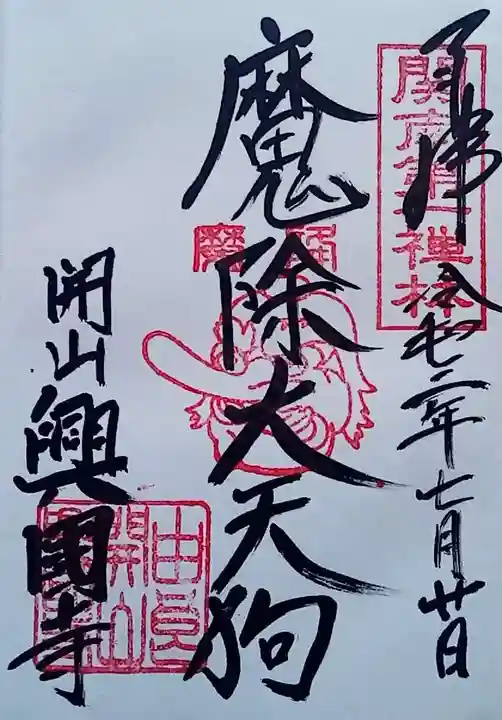 奉拝 令和二年七月廿日
関南第一禪林
魔除大天狗
開山興國寺
由良
開山